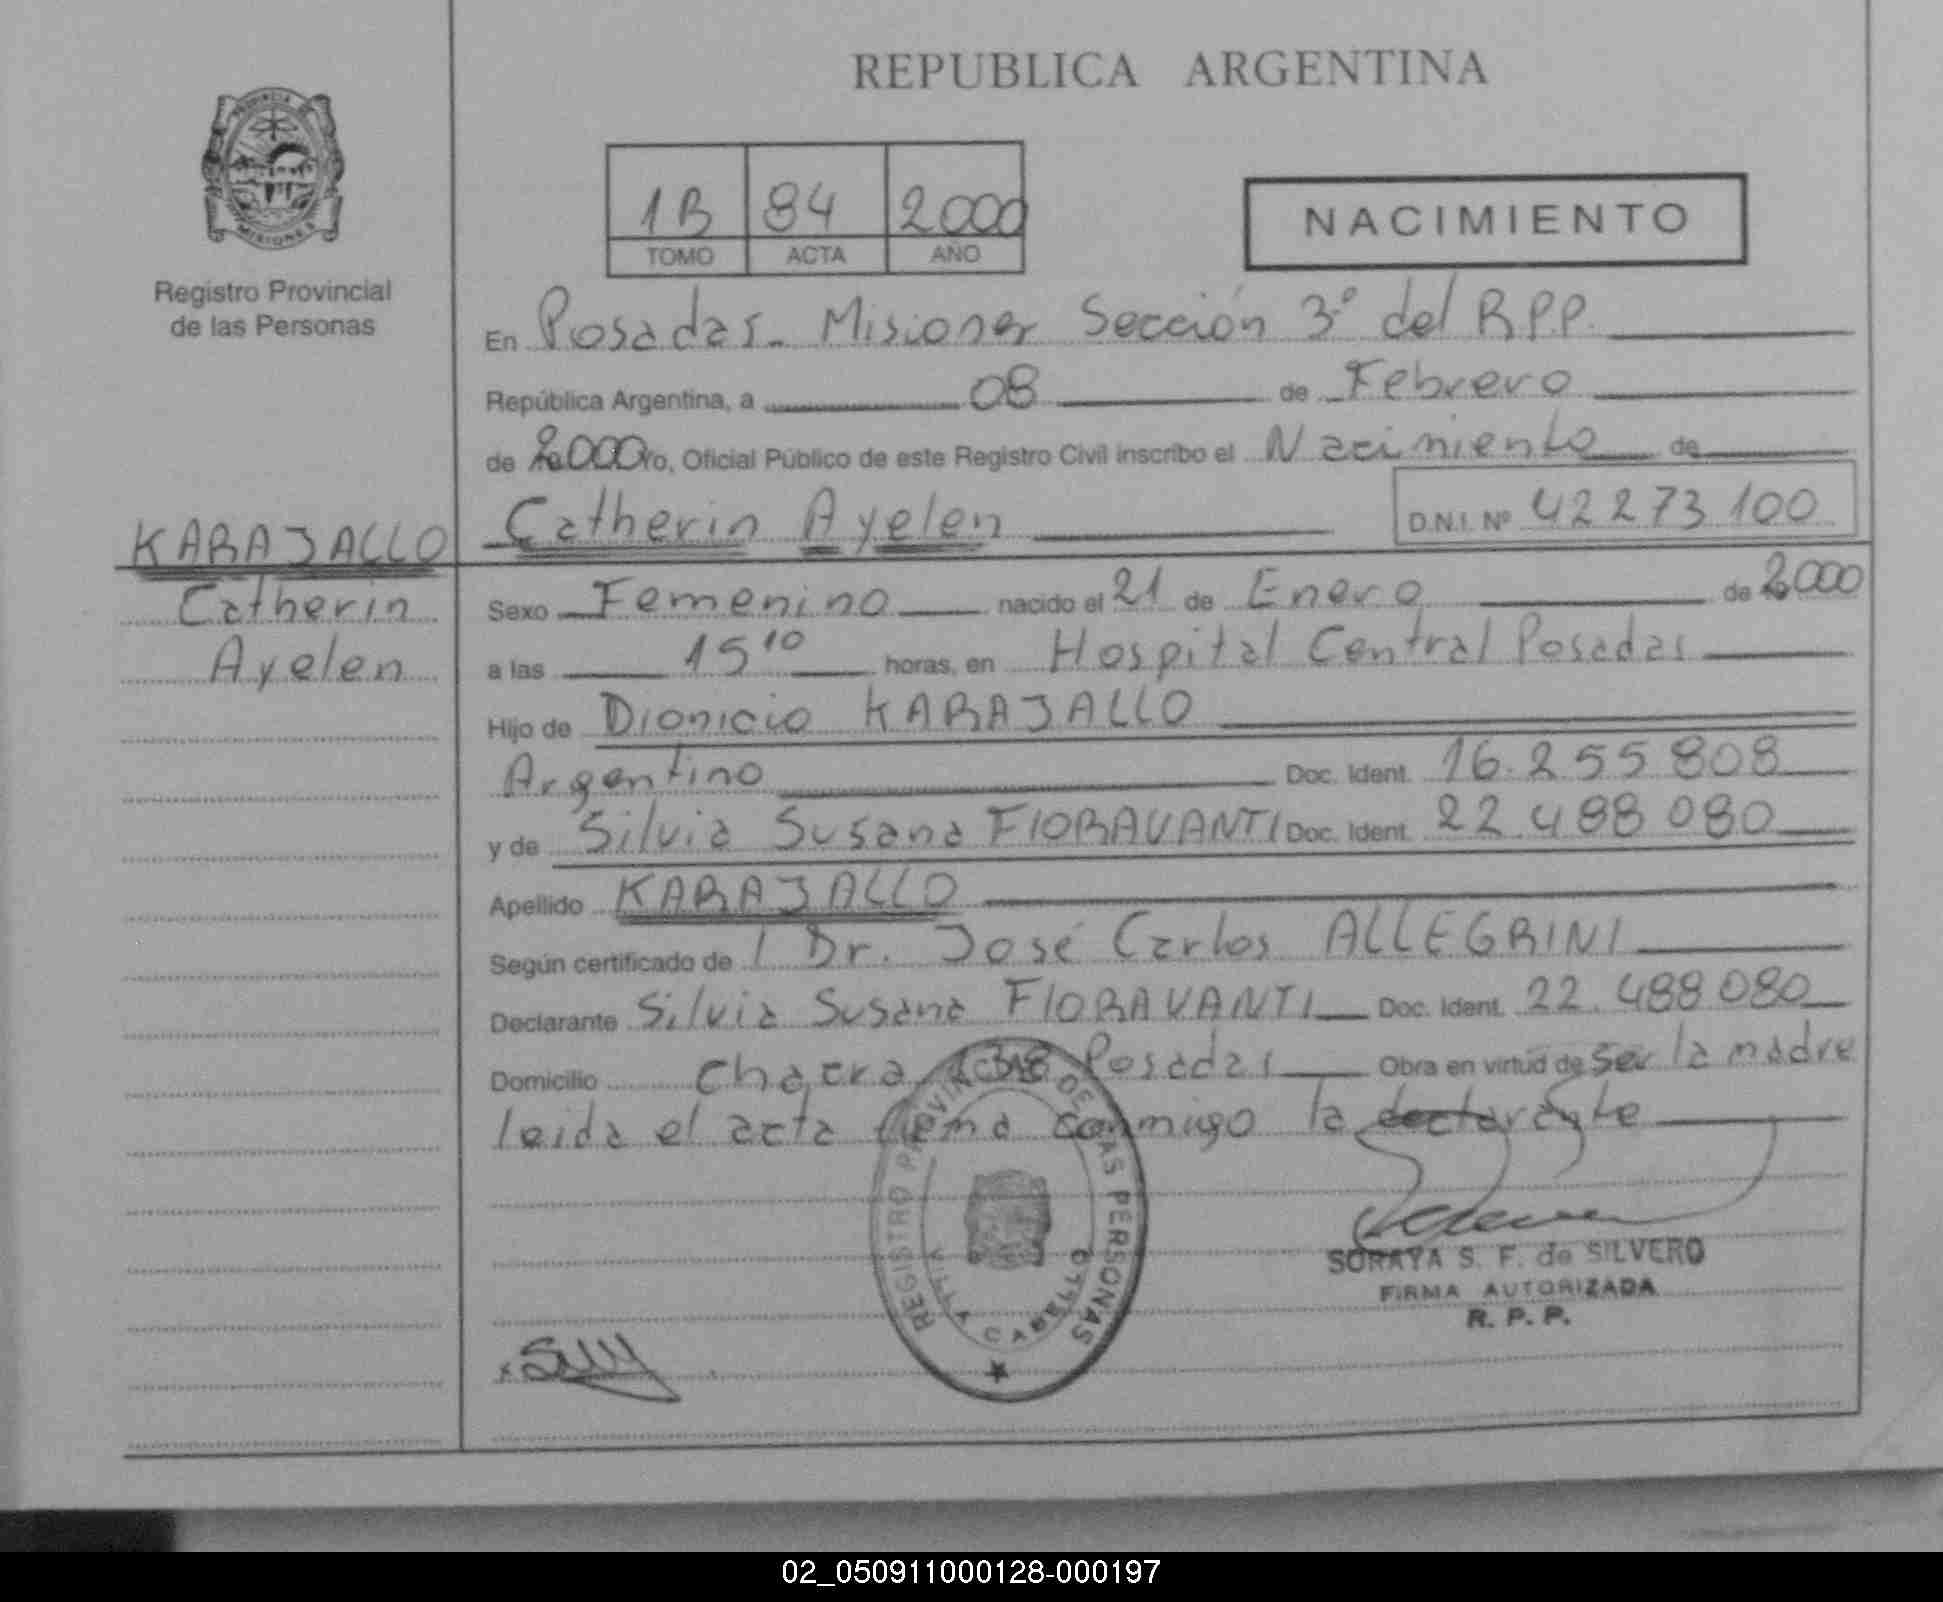 REPUBLICA ARGENTINA
PROVINCIA DE
MISIONES
Registro Provincial
de las Personas
1B 84 2000
TOMO ACTA AÑO
NACIMIENTO
En Posadas. Misiones Sección 3º del R.P.P.
República Argentina, a 08 de Febrero
de 2000 Yo, Oficial Público de este Registro Civil inscribo el Nacimiento de
Catherin Ayelen D.N.I. Nº 42273100
KARAJALLO
Catherin
Ayelen
Sexo Femenino nacido el 21 de Enero de 2000
a las 15 10 horas, en Hospital Central Posadas
Hijo de Dionicio KARAJALLO
Argentino Doc. Ident. 16.255808
y de Silvia Susana FIORAVANTI Doc. Ident. 22.488080
Apellido KARAJALLO
Según certificado de l Dr. José Carlos ALLEGRINI
Declarante Silvia Susana FIORAVANTI Doc. Ident. 22.488080
Domicilio chacra Posadas Obra en virtud de ser la madre
leida el acta firma conmigo la declarante
REGISTRO PROVINCIAL DE LAS PERSONAS
VILLA CABELLO
SORAYA S. F. de SILVERO
FIRMA AUTORIZADA
R. P. P.
02_050911000128-000197